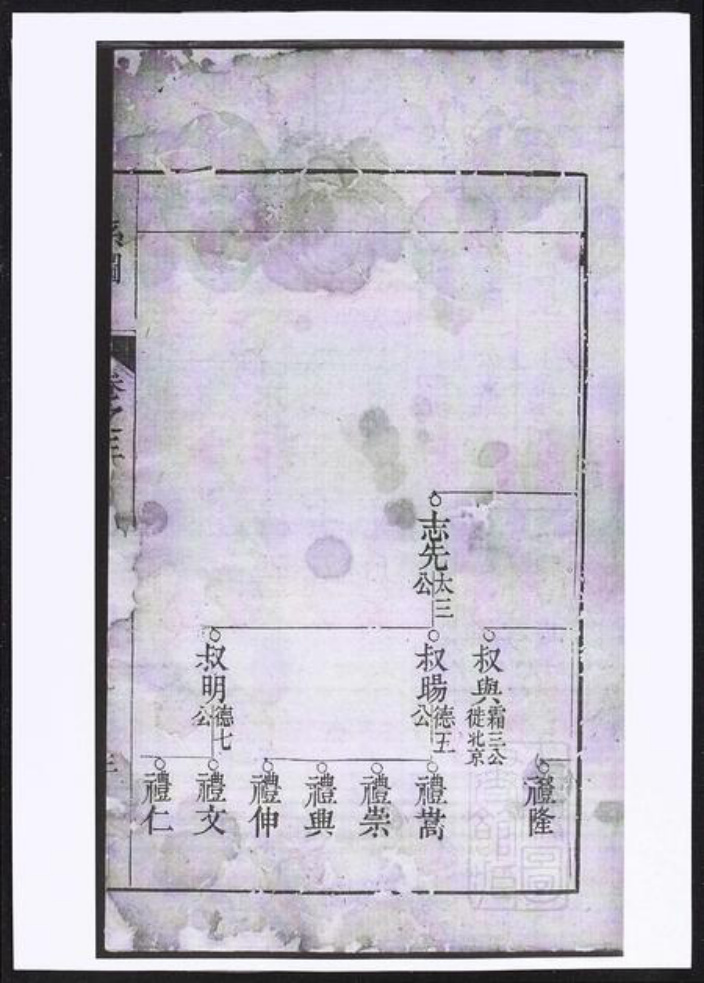 志先
太三公
叔與
霜三公徙北京
叔暘
德五公
叔明
德七公
禮隆
禮嵩
禮崇
禮典
禮伸
禮文
禮仁
系圖
卷之三